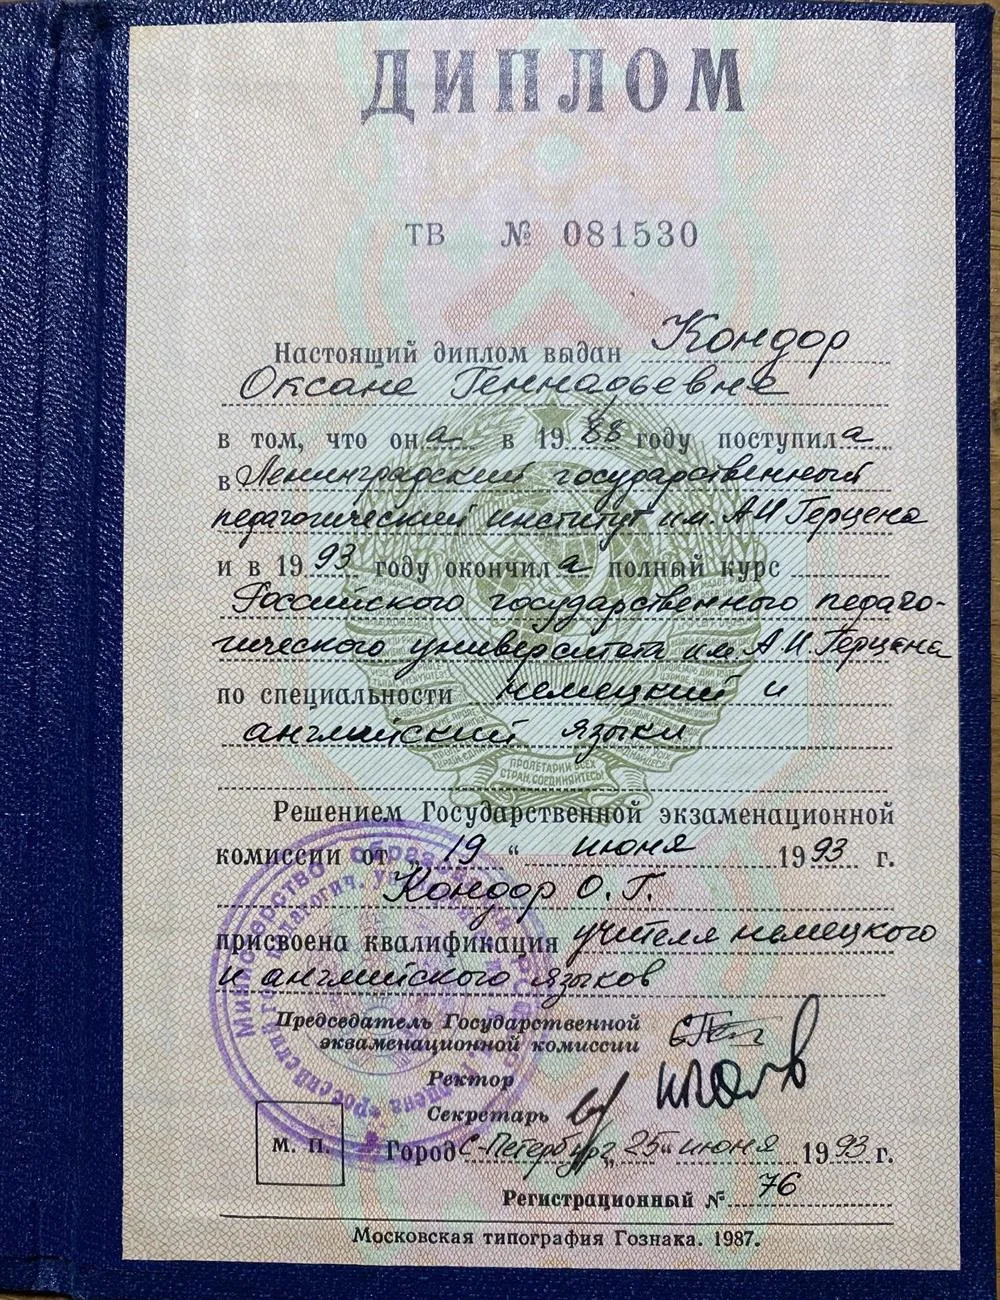 ДИПЛОМ
ТВ № 081530
Настоящий диплом выдан Кондор
Оксане Геннадьевне
в том, что она в 1988 году поступила
в Ленинградский государственный
педагогический институт им. А И Герцена
и в 1993 году окончила полный курс
Российского государственного педаго-
гического университета им. А. И. Герцена
по специальности немецкий и
английский языки
ПРОЛЕТАРИИ ВСЕХ
СТРАН, СОЕДИНЯЙТЕСЬ!
Решением Государственной экзаменационной
комиссии от „ 19 “ июня 1993 г.
Кондор О. Г.
присвоена квалификация учителя немецкого
и английского языков
Председатель Государственной
экзаменационной комиссии
Ректор
Секретарь
М. П.
Город С-Петербург „ 25 “ июня 1993 г.
Регистрационный № 76
Московская типография Гознака. 1987.
Министерство образования
Российский гос. педагогич.
Герцена